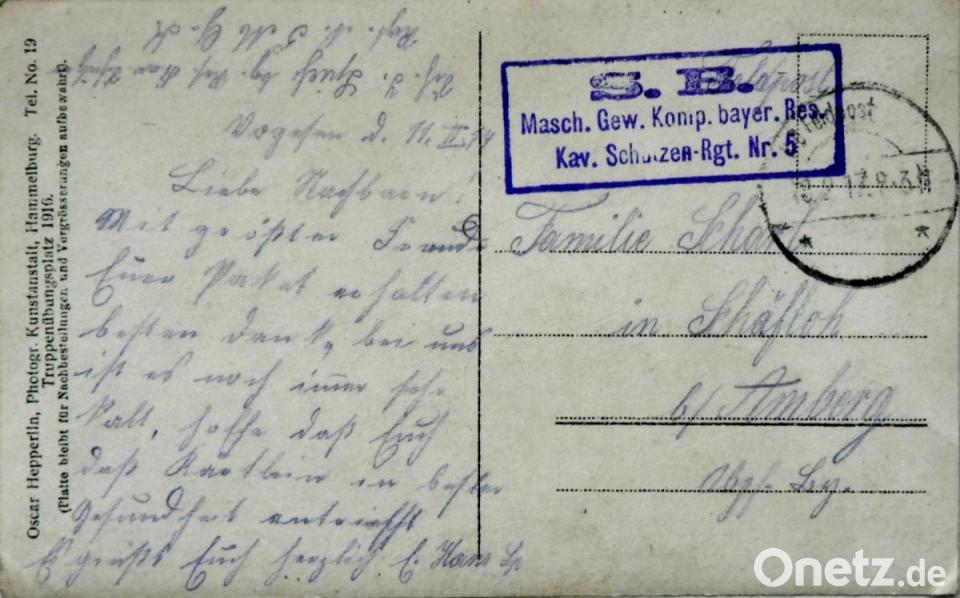 Vogesen d. 11. II. 17
Liebe Nachbarn!
Mit größter Freude
Euer Paket erhalten
besten Dank, bei uns
ist es noch immer sehr
kalt, hoffe daß Euch
daß Kärtlein in bester
Gesundheit antrifft
Es grüßt Euch herzlich Hans
Feldpost
S. B.
Masch. Gew. Komp. bayer. Res.
Kav. Schützen-Rgt. Nr. 5
Feldpost
Familie Scharl
in Schäfloh
b/ Amberg
Oscar Hepperlin, Photogr. Kunstanstalt, Hammelburg. Tel. No. 19
Truppenübungsplatz 1916.
(Platte bleibt für Nachbestellungen und Vergrösserungen aufbewahrt).
Onetz.de